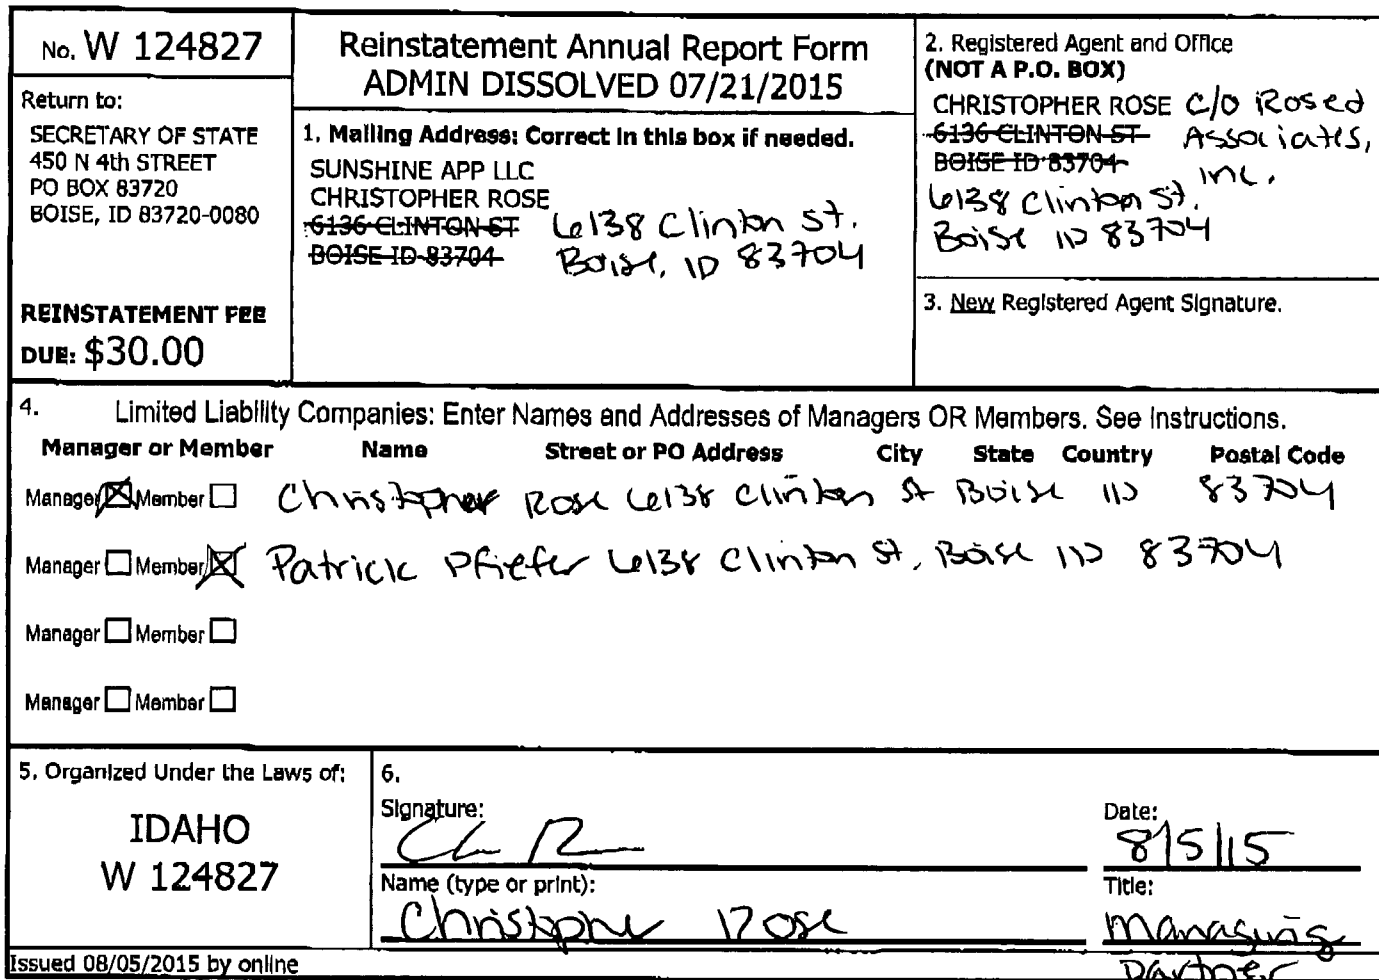 No. W 124827
Return to:
SECRETARY OF STATE
450 N 4th STREET
PO BOX 83720
BOISE, ID 83720-0080
REINSTATEMENT FEE
DUE: $30.00
Reinstatement Annual Report Form
ADMIN DISSOLVED 07/21/2015
1. Mailing Address: Correct in this box if needed.
SUNSHINE APP LLC
CHRISTOPHER ROSE
6136 CLINTON ST 6138 Clinton St.
BOISE ID 83704 Boise, ID 83704
2. Registered Agent and Office
(NOT A P.O. BOX)
CHRISTOPHER ROSE C/O Rosed
6136 CLINTON ST Associates,
BOISE ID 83704 inc.
6138 Clinton St.
Boise ID 83704
3. New Registered Agent Signature.
4. Limited Liability Companies: Enter Names and Addresses of Managers OR Members. See Instructions.
Manager or Member Name Street or PO Address City State Country Postal Code
Manager Member Christopher Rose 6138 Clinton St Boise ID 83704
Manager Member Patrick Pfiefer 6138 Clinton St. Boise ID 83704
Manager Member
Manager Member
5. Organized Under the Laws of:
IDAHO
W 124827
6.
Signature:
Date:
8/5/15
Name (type or print):
Christopher Rose
Title:
Managing
Partner
Issued 08/05/2015 by online